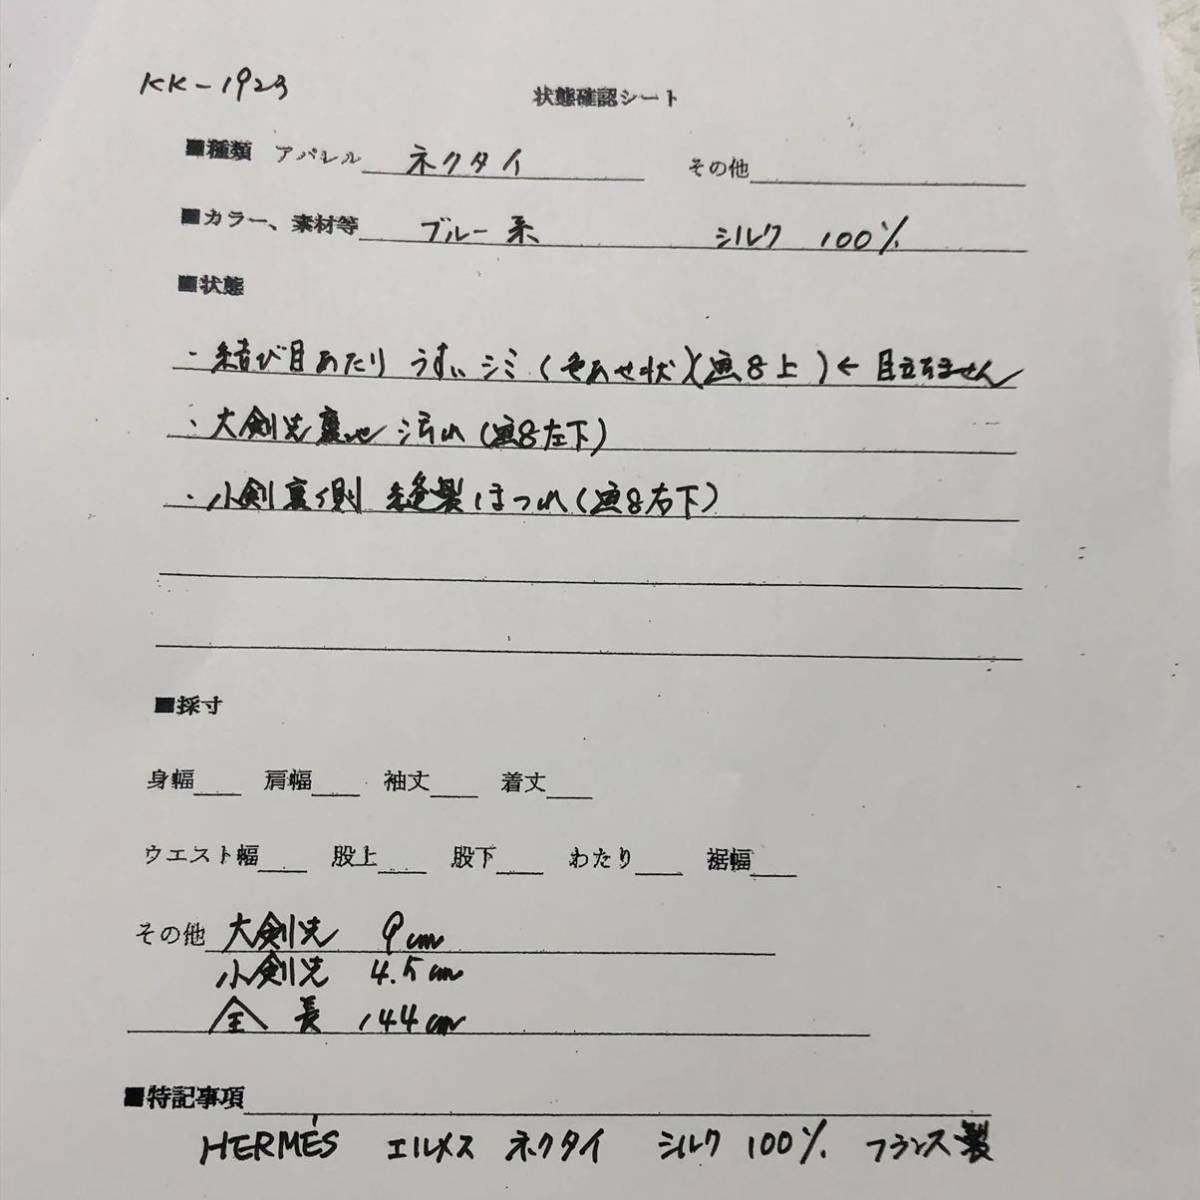 KK-1923
状態確認シート
■種類 アパレル ネクタイ その他
■カラー、素材等 ブルー系 シルク 100%
■状態
・結び目あたり うすいシミ(色あせ状)(画8上)←目立ちません
・大剣先裏地 汚れ(画8左下)
・小剣裏側 縫製ほつれ(画8右下)
■採寸
身幅 肩幅 袖丈 着丈
ウエスト幅 股上 股下 わたり 裾幅
その他 大剣先 9cm
小剣先 4.5cm
全長 144cm
■特記事項
HERMÉS エルメス ネクタイ シルク 100% フランス製